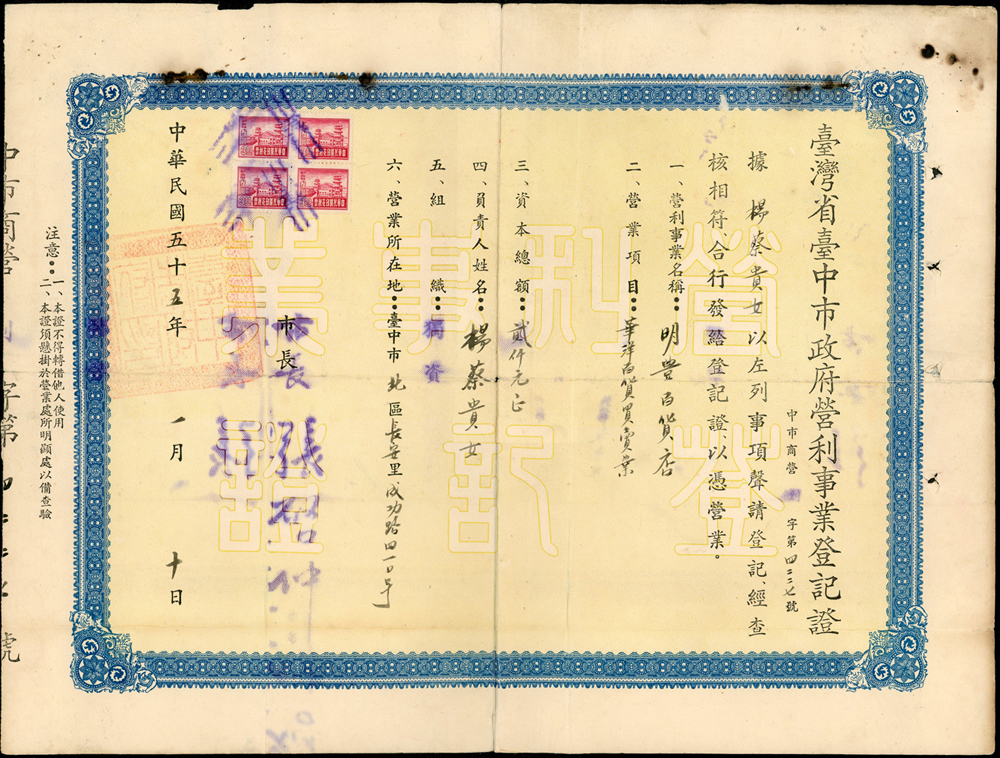 臺灣省臺中市政府營利事業登記證
中市商營 字第四二二七號
據 楊蔡貴女 以左列事項聲請登記、經查
核相符、合行發給登記證、以憑營業。
一、營利事業名稱： 明豊百貨店
二、營業項目： 華洋百貨買賣業
三、資本總額： 貳仟元正
四、負責人姓名： 楊蔡貴女
五、組織： 獨資
六、營業所在地：臺中市 北 區 長安里成功路四一〇号
市長
市長 張啓仲
中華民國五十五年 一 月 十 日
注意：一、本證不得轉借他人使用
二、本證須懸掛於營業處所明顯處以備查驗
營利事業
登記證
中市商營 字第 號